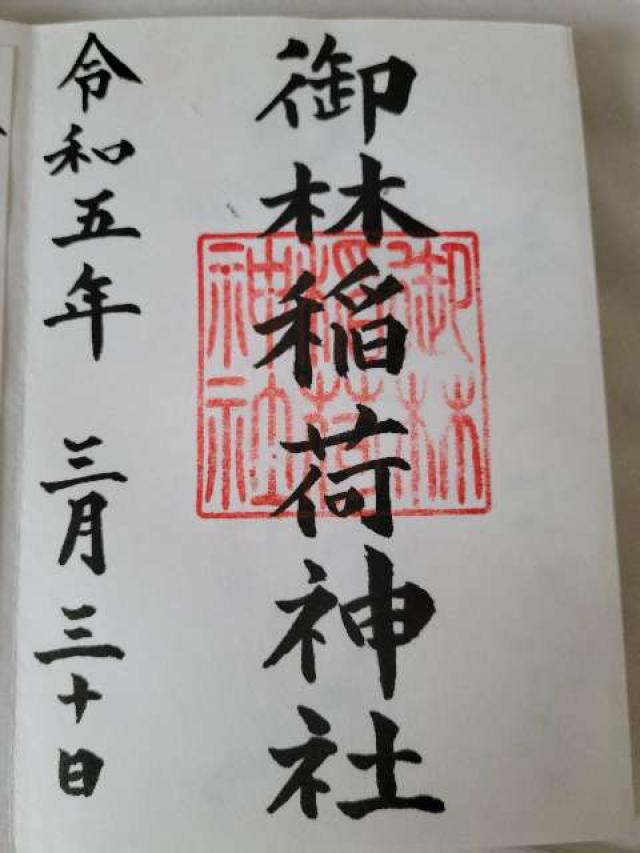 御林稲荷神社
御林
稲荷
神社
令和五年 三月三十日